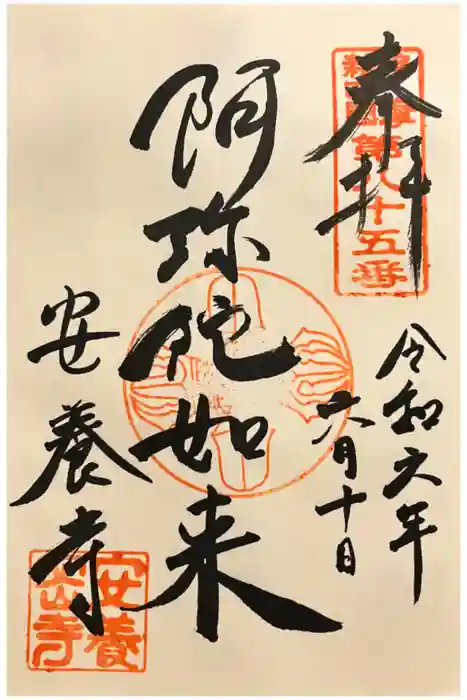 奉拝
第八十五番
令和六年
六月十日
阿弥陀如来
安養寺
安養
山寺